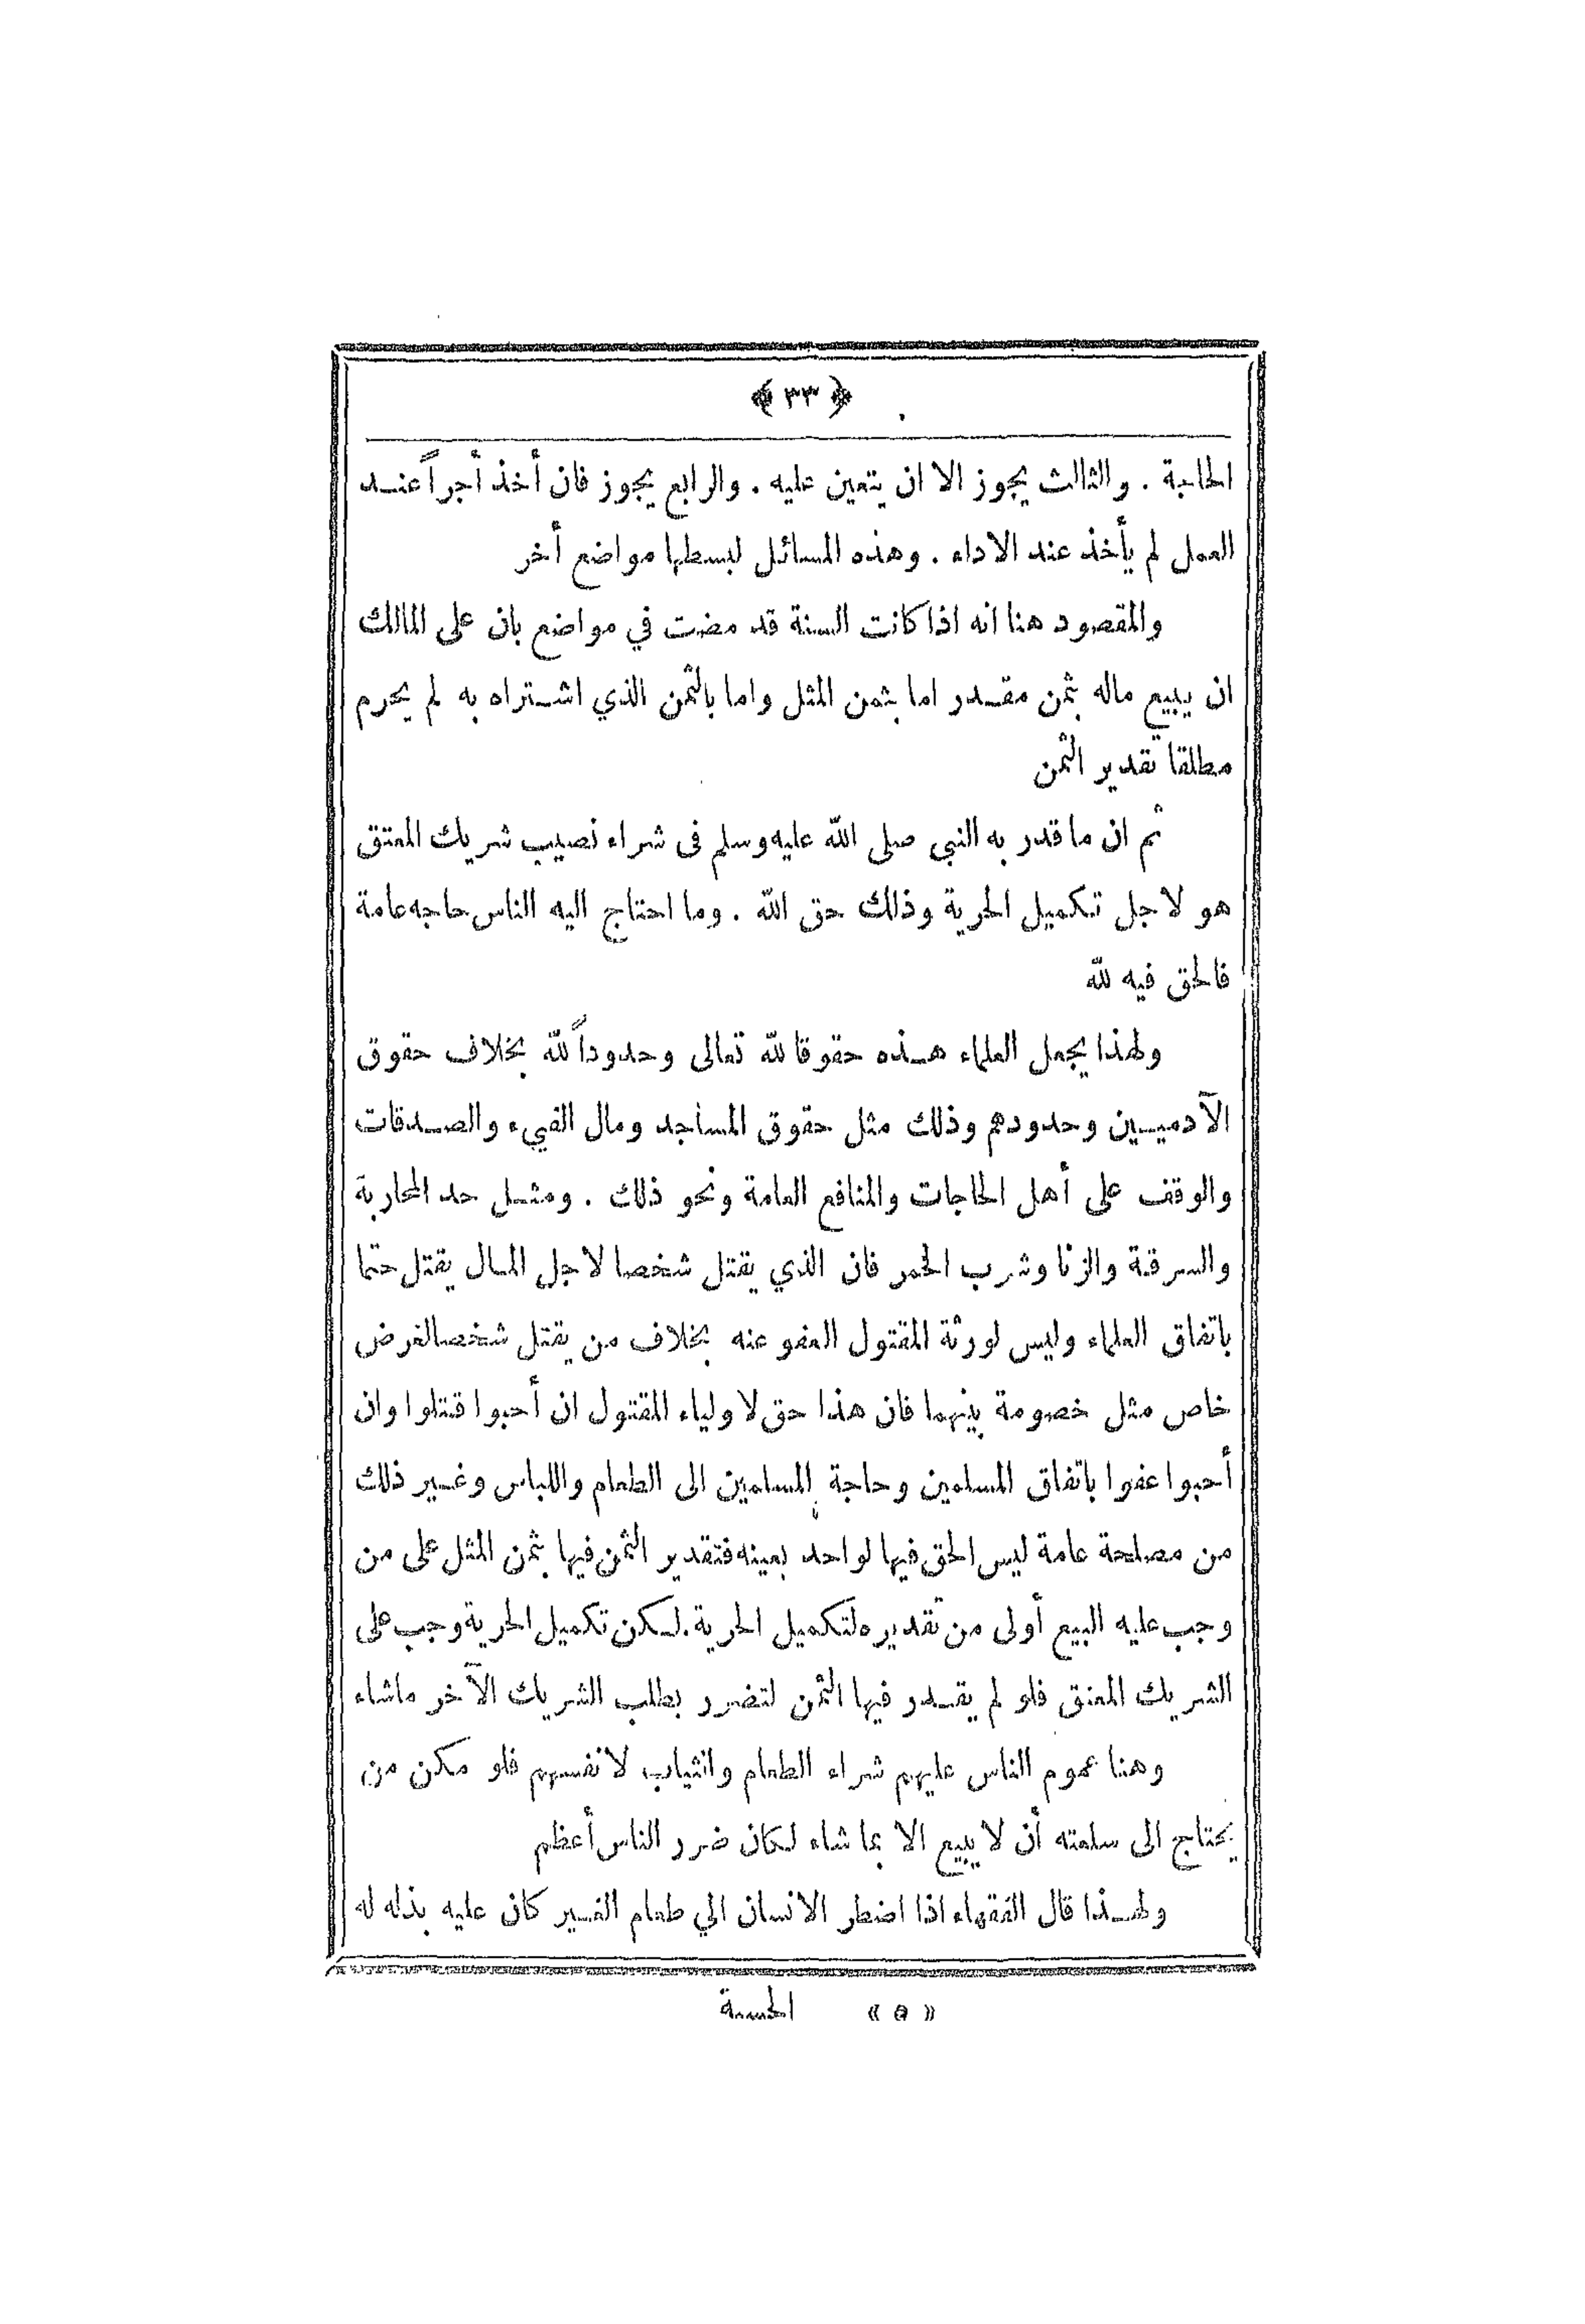 ﴿ ٣٣ ﴾
الحاجة . والثالث يجوز الا ان يتعين عليه . والرابع يجوز فان أخذ أجراً عند
العمل لم يأخذ عند الاداء . وهذه المسائل لبسطها مواضع أخر
والمقصود هنا انه اذا كانت السنة قد مضت في مواضع بان على المالك
ان يبيع ماله بثمن مقدر اما بثمن المثل واما بالثمن الذي اشتراه به لم يحرم
مطلقا تقدير الثمن
ثم ان ما قدر به النبي صلى الله عليه وسلم فى شراء نصيب شريك المعتق
هو لاجل تكميل الحرية وذلك حق الله . وما احتاج اليه الناس حاجه عامة
فالحق فيه لله
ولهذا يجعل العلماء هذه حقوقا لله تعالى وحدوداً لله بخلاف حقوق
الآدميين وحدودهم وذلك مثل حقوق المساجد ومال الفيء والصدقات
والوقف على أهل الحاجات والمنافع العامة ونحو ذلك . ومثل حد المحاربة
والسرقة والزنا وشرب الخمر فان الذي يقتل شخصا لاجل المال يقتل حتما
باتفاق العلماء وليس لورثة المقتول العفو عنه بخلاف من يقتل شخصا لغرض
خاص مثل خصومة بينهما فان هذا حق لاولياء المقتول ان أحبوا قتلوا وان
أحبوا عفوا باتفاق المسلمين وحاجة المسلمين الى الطعام واللباس وغير ذلك
من مصلحة عامة ليس الحق فيها لواحد بعينه فتقدير الثمن فيها بثمن المثل على من
وجب عليه البيع أولى من تقديره لتكميل الحرية . لكن تكميل الحرية وجب على
الشريك المعتق فلو لم يقدر فيها الثمن لتضرر بطلب الشريك الآخر ماشاء
وهنا عموم الناس عليهم شراء الطعام والثياب لانفسهم فلو مكن من
يحتاج الى سلعته أن لا يبيع الا بما شاء لكان ضرر الناس أعظم
ولهذا قال الفقهاء اذا اضطر الانسان الي طعام الغير كان عليه بذله له
« ٥ » الحسبة